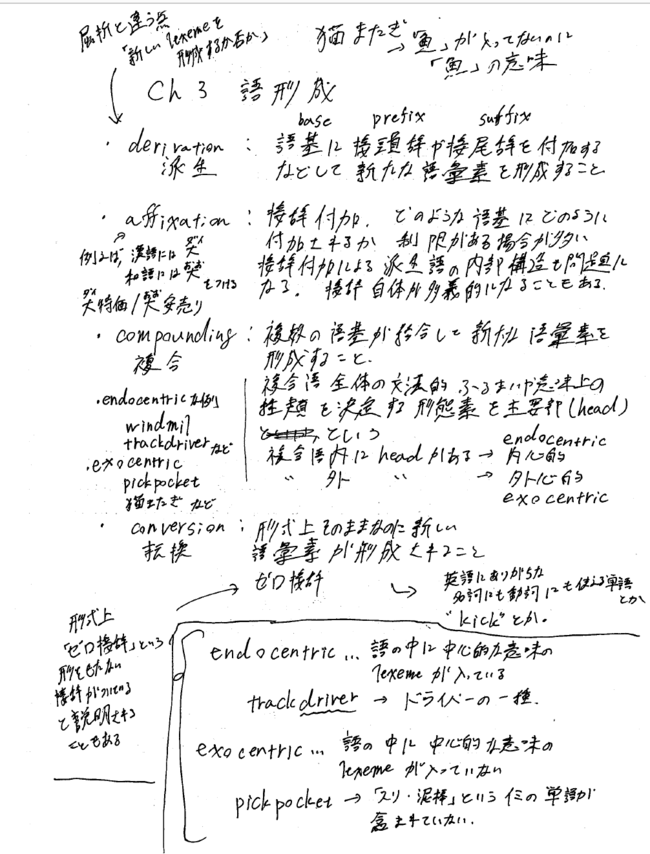 屈折と違う点
「新しいlexemeを
形成するか否か」
猫またぎ
→「魚」が入ってないのに
「魚」の意味
Ch 3 語形成
base prefix suffix
・derivation : 語基に接頭辞や接尾辞を付加する
派生 などして新たな語彙素を形成すること
・affixation : 接辞付加. どのような語基にどのように
付加されるか 制限がある場合が多い
接辞付加による派生語の内部構造も問題に
なる. 接辞自体が多義的になることもある.
例えば, 漢語には 大 ダイ
和語には 大 をつける
大特価/大安売り
・compounding : 複数の語基が結合して新たな語彙素を
複合 形成すること.
複合語全体の文法的ふるまいや意味上の
性質を決定する形態素を主要部(head)
という
複合語内にheadがある → endocentric 内心的
〃 外 〃 → 外心的
exocentric
・endocentricな例
windmil
trackdriver など
・exocentric
pickpocket
猫またぎ など
・conversion : 形式上そのままなのに新しい
転換 語彙素が形成されること
→ ゼロ接辞
↳ 英語にありがちな
名詞にも動詞にも使える単語
とか
"kick"とか.
形式上
「ゼロ接辞」という
形をもたない
接辞がついている
と説明される
こともある
endocentric … 語の中に中心的な意味の
lexemeが入っている
trackdriver → ドライバーの一種.
exocentric … 語の中に中心的な意味の
lexemeが入っていない
pickpocket → 「スリ・泥棒」という の単語が
含まれていない.